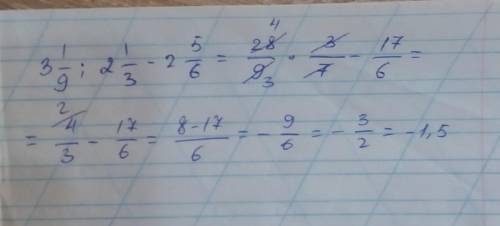 3 1/9 : 2 1/3 - 2 5/6 = 28/9 · 3/7 - 17/6 = 4 3
= 4/3 - 17/6 = 8-17/6 = - 9/6 = - 3/2 = -1,5 2